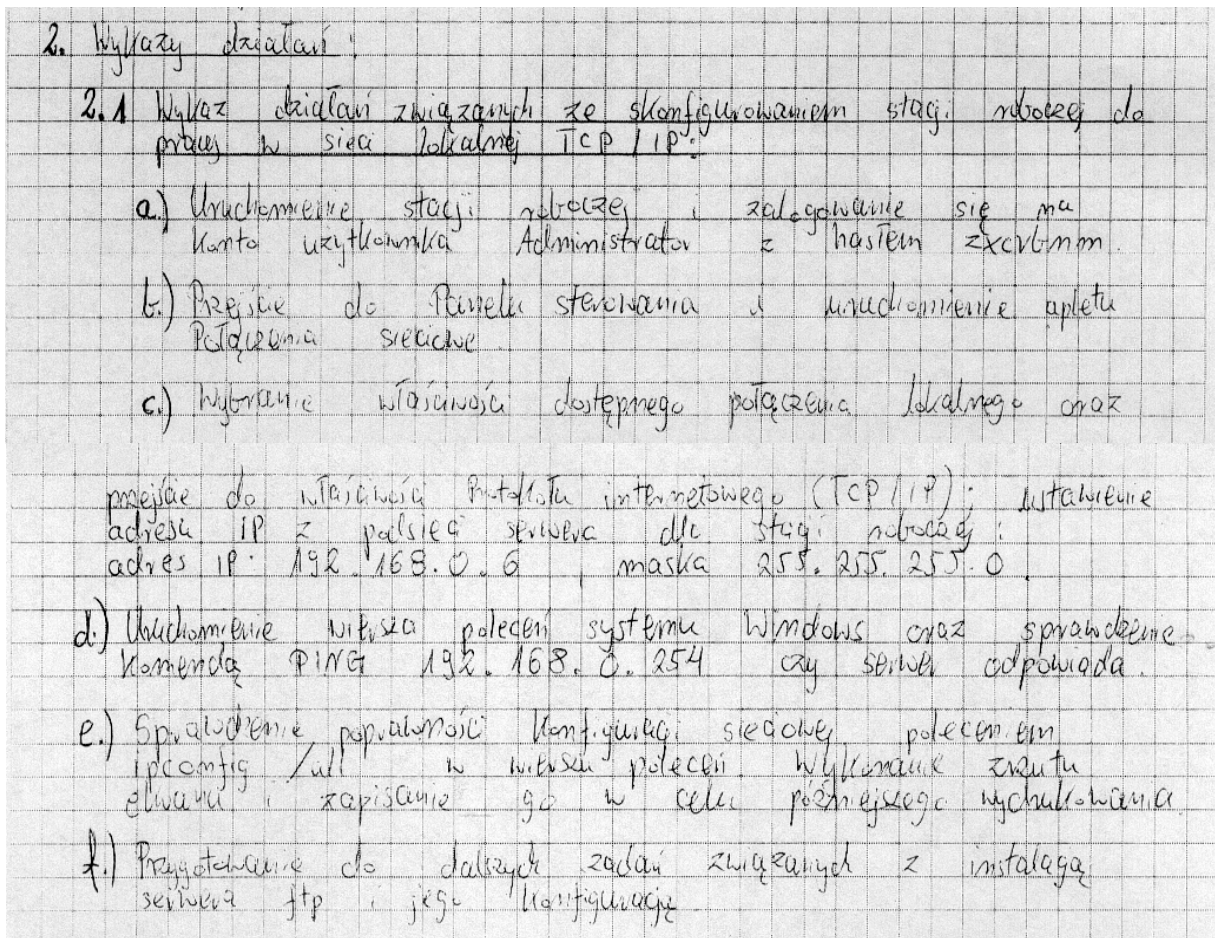 2. Wykazy działań:
2.1 Wykaz działań związanych ze skonfigurowaniem stacji roboczej do
pracy w sieci lokalnej TCP/IP:
a.) Uruchomienie stacji roboczej i zalogowanie się na
konto użytkownika Administrator z hasłem zxcvbnm.
b.) Przejście do Panelu sterowania i uruchomienie apletu
Połączenia sieciowe.
c.) Wybranie właściwości dostępnego połączenia lokalnego oraz
przejście do właściwości Protokołu internetowego (TCP/IP); ustawienie
adresu IP z podsieci serwera dla stacji roboczej:
adres IP: 192.168.0.6, maska 255.255.255.0.
d.) Uruchomienie wiersza poleceń systemu Windows oraz sprawdzenie
komendą PING 192.168.0.254 czy serwer odpowiada.
e.) Sprawdzenie poprawności konfiguracji sieciowej poleceniem
ipconfig /all w wierszu poleceń. Wykonanie zrzutu
ekranu i zapisanie go w celu późniejszego wydrukowania.
f.) Przygotowanie do dalszych zadań związanych z instalacją
serwera ftp i jego konfiguracją.